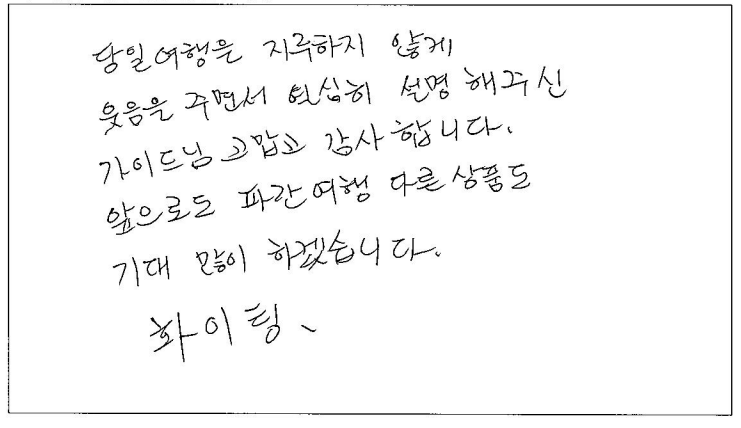 당일여행은 지루하지 않게
웃음을 주면서 열심히 설명 해주신
가이드님 고맙고 감사합니다.
앞으로도 파란여행 다른상품도
기대 많이 하겠습니다.
화이팅.